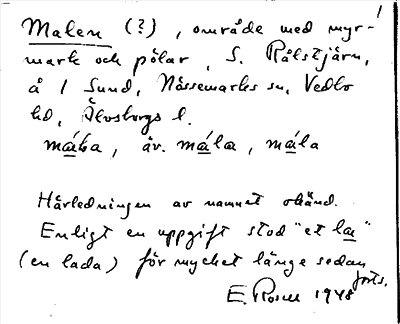 1
Malen (?), område med myr-
mark och pölar, S. Rålstjärn,
å 1 Sund, Nössemarks sn, Vedbo
hd, Älvsborgs l.
mála, äv. mála, mála
Härledningen av namnet okänd.
Enligt en uppgift stod "et la"
(en lada) för mycket länge sedan
forts.
E. Rosell 1948